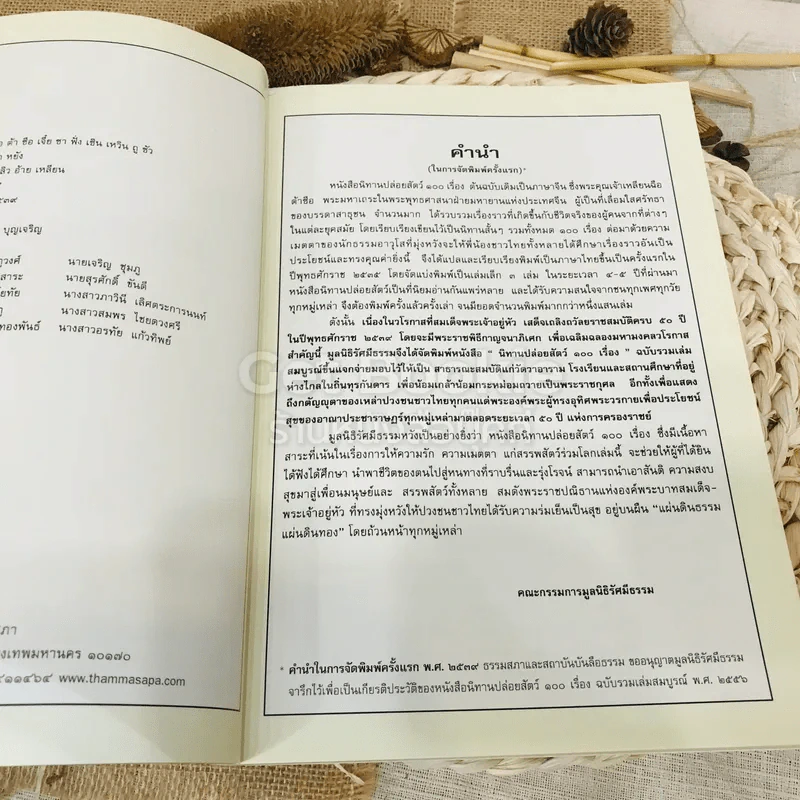 ต้า ซือ เจี้ย ซา ฟั่ง เซิน เหวิน ถู ซัว
หยัง
ลิว อ้าย เหลียน
๕๓๙
บุญเจริญ
นายเจริญ ชุมภู
นายสุรศักดิ์ ขันตี
นางสาวภาวินี เลิศตระการนนท์
นางสาวสมพร ไชยดวงศรี
นางสาวอรทัย แก้วทิพย์
งเทพมหานคร ๑๐๑๗๐
๔๑๑๔๖๔ www.thammasapa.com
คำนำ
(ในการจัดพิมพ์ครั้งแรก)*
หนังสือนิทานปล่อยสัตว์ ๑๐๐ เรื่อง ต้นฉบับเดิมเป็นภาษาจีน ซึ่งพระคุณเจ้าเหลียนฉือ
ต้าซือ พระมหาเถระในพระพุทธศาสนาฝ่ายมหายานแห่งประเทศจีน ผู้เป็นที่เลื่อมใสศรัทธา
ของบรรดาสาธุชน จำนวนมาก ได้รวบรวมเรื่องราวที่เกิดขึ้นกับชีวิตจริงของผู้คนจากที่ต่างๆ
ในแต่ละยุคสมัย โดยเรียบเรียงเขียนไว้เป็นนิทานสั้นๆ รวมทั้งหมด ๑๐๐ เรื่อง ต่อมาด้วยความ
เมตตาของนักธรรมอาวุโสที่มุ่งหวังจะให้พี่น้องชาวไทยทั้งหลายได้ศึกษาเรื่องราวอันเป็น
ประโยชน์และทรงคุณค่ายิ่งนี้ จึงได้แปลและเรียบเรียงพิมพ์เป็นภาษาไทยขึ้นเป็นครั้งแรกใน
ปีพุทธศักราช ๒๕๓๕ โดยจัดแบ่งพิมพ์เป็นเล่มเล็ก ๓ เล่ม ในระยะเวลา ๔-๕ ปีที่ผ่านมา
หนังสือนิทานปล่อยสัตว์เป็นที่นิยมอ่านกันแพร่หลาย และได้รับความสนใจจากชนทุกเพศทุกวัย
ทุกหมู่เหล่า จึงต้องพิมพ์ครั้งแล้วครั้งเล่า จนมียอดจำนวนพิมพ์มากกว่าหนึ่งแสนเล่ม
ดังนั้น เนื่องในวโรกาสที่สมเด็จพระเจ้าอยู่หัว เสด็จเถลิงถวัลยราชสมบัติครบ ๕๐ ปี
ในปีพุทธศักราช ๒๕๓๙ โดยจะมีพระราชพิธีกาญจนาภิเศก เพื่อเฉลิมฉลองมหามงคลวโรกาส
สำคัญนี้ มูลนิธิรัศมีธรรมจึงได้จัดพิมพ์หนังสือ " นิทานปล่อยสัตว์ ๑๐๐ เรื่อง " ฉบับรวมเล่ม
สมบูรณ์ขึ้นแจกจ่ายมอบไว้ให้เป็น สาธารณะสมบัติแก่วัดวาอาราม โรงเรียนและสถานศึกษาที่อยู่
ห่างไกลในถิ่นทุรกันดาร เพื่อน้อมเกล้าน้อมกระหม่อมถวายเป็นพระราชกุศล อีกทั้งเพื่อแสดง
ถึงกตัญญุตาของเหล่าปวงชนชาวไทยทุกคนแด่พระองค์พระผู้ทรงอุทิศพระวรกายเพื่อประโยชน์
สุขของอาณาประชาราษฎร์ทุกหมู่เหล่ามาตลอดระยะเวลา ๕๐ ปี แห่งการครองราชย์
มูลนิธิรัศมีธรรมหวังเป็นอย่างยิ่งว่า หนังสือนิทานปล่อยสัตว์ ๑๐๐ เรื่อง ซึ่งมีเนื้อหา
สาระที่เน้นในเรื่องการให้ความรัก ความเมตตา แก่สรรพสัตว์ร่วมโลกเล่มนี้ จะช่วยให้ผู้ที่ได้ยิน
ได้ฟังได้ศึกษา นำพาชีวิตของตนไปสู่หนทางที่ราบรื่นและรุ่งโรจน์ สามารถนำเอาสันติ ความสงบ
สุขมาสู่เพื่อนมนุษย์และ สรรพสัตว์ทั้งหลาย สมดังพระราชปณิธานแห่งองค์พระบาทสมเด็จ-
พระเจ้าอยู่หัว ที่ทรงมุ่งหวังให้ปวงชนชาวไทยได้รับความร่มเย็นเป็นสุข อยู่บนผืน "แผ่นดินธรรม
แผ่นดินทอง" โดยถ้วนหน้าทุกหมู่เหล่า
คณะกรรมการมูลนิธิรัศมีธรรม
* คำนำในการจัดพิมพ์ครั้งแรก พ.ศ. ๒๕๓๙ ธรรมสภาและสถาบันบันลือธรรม ขออนุญาตมูลนิธิรัศมีธรรม
จารึกไว้เพื่อเป็นเกียรติประวัติของหนังสือนิทานปล่อยสัตว์ ๑๐๐ เรื่อง ฉบับรวมเล่มสมบูรณ์ พ.ศ. ๒๕๕๖